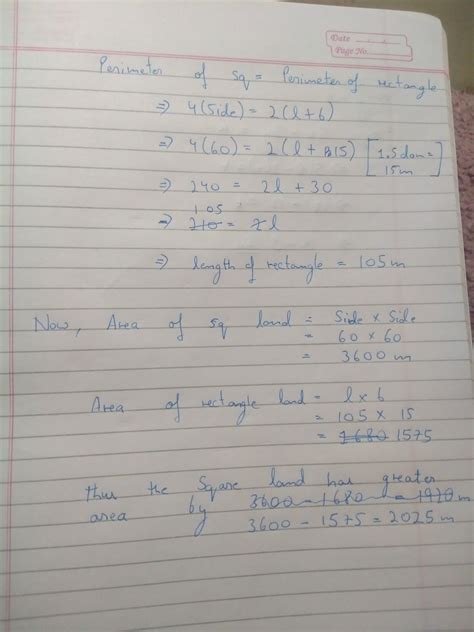 Date
Page No.
Perimeter of sq = Perimeter of rectangle
⇒ 4(Side) = 2(l+b)
⇒ 4(60) = 2(l+15) [1.5 dam = 15m]
⇒ 240 = 2l + 30
105
⇒ 210 = 2l
⇒ length of rectangle = 105m
Now, Area of sq land = Side × Side
= 60 × 60
= 3600 m
Area of rectangle land = l×b
= 105 × 15
= 1680 1575
thus the Square land has greater
area by 3600 - 1680 = 1920 m
3600 - 1575 = 2025 m